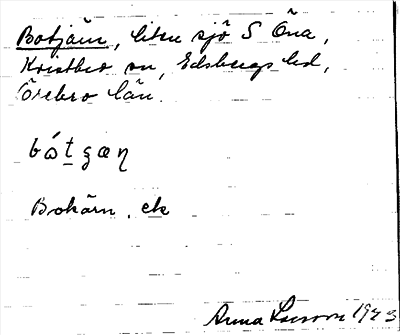 Botjärn, liten sjö S Öna,
Kvistbro sn, Edsbergs hd,
Örebro län.
bótʒæn
Botärn. ek
Anna Larsson 1943